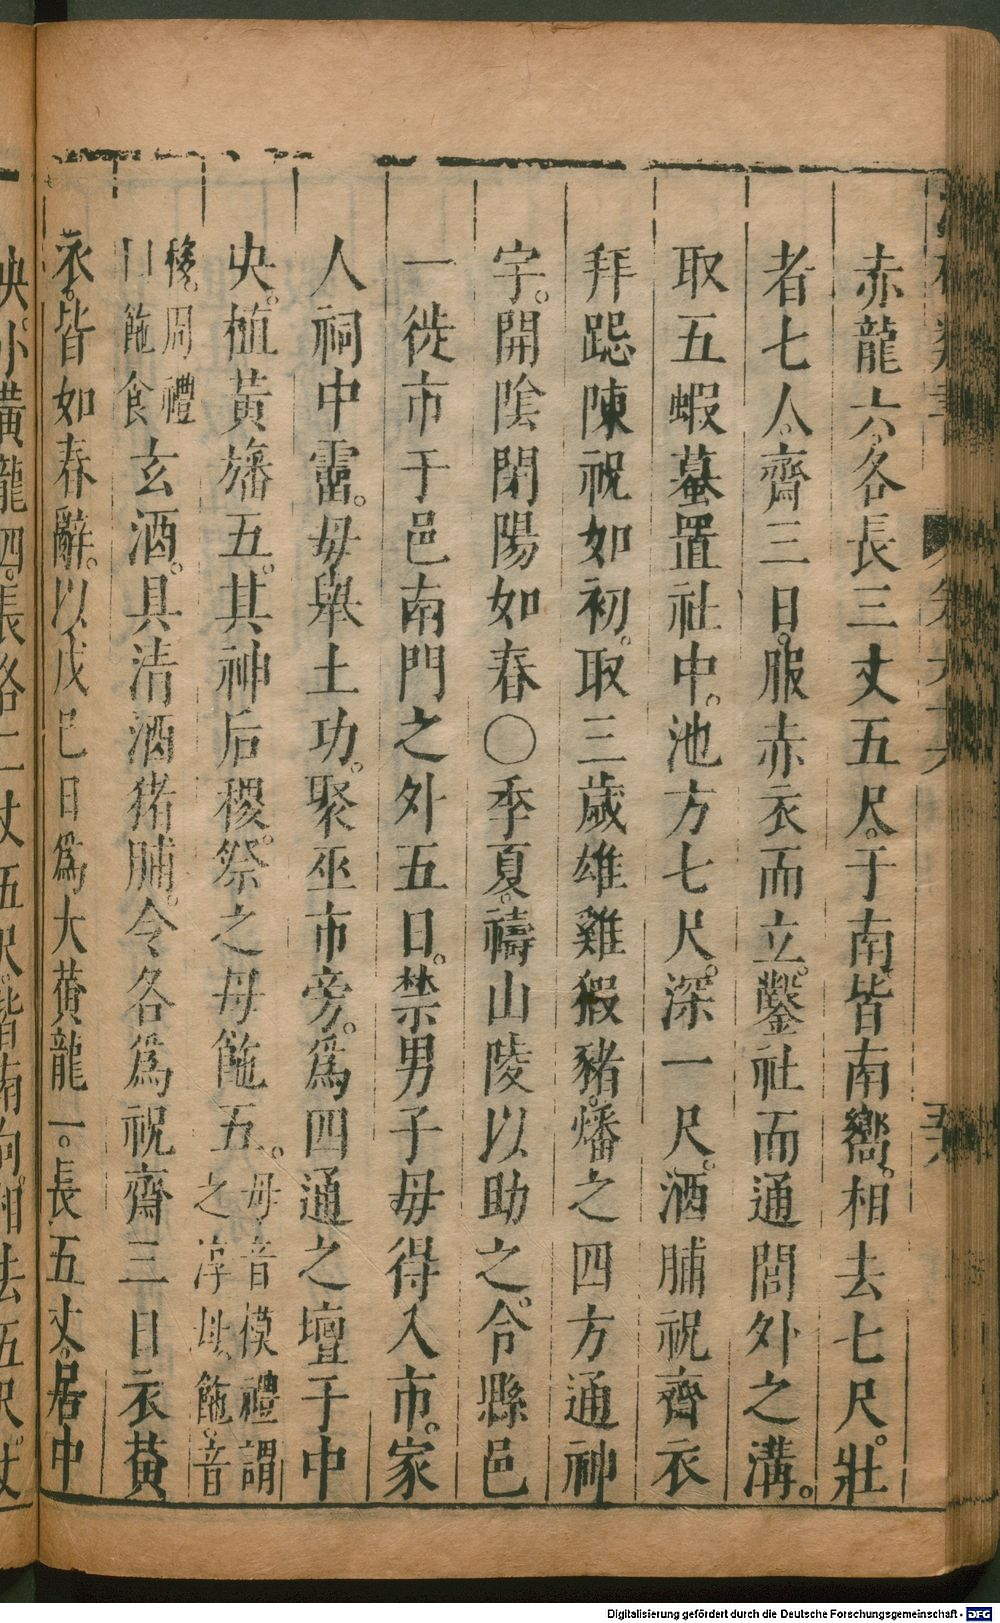 赤龍六。各長三丈五尺。于南皆南嚮。相去七尺。壯
者七人。齋三日。服赤衣而立。鑿社而通閭外之溝。
取五蝦蟇置社中。池方七尺。深一尺。酒脯祝齋衣
拜跽陳祝如初。取三歲雄雞豭豬。燔之四方通神
宇。開陰閉陽如春〇季夏。禱山陵以助之。令縣邑
一徙市于邑南門之外五日。禁男子毋得入市。家
人祠中霤。毋舉土功。聚巫市旁。爲四通之壇于中
央。植黃旛五。其神后稷。祭之母𩛆五。母音模禮謂
之淳母。𩛆。音
移。周禮
曰𩛆食玄酒。具清酒猪脯。令各爲祝齋三日衣黃
衣。皆如春辭。以戊己日爲大黃龍一。長五丈。居中
央。小黃龍四。長各二丈五尺。皆南向。相去五尺。丈
Digitalisierung gefördert durch die Deutsche Forschungsgemeinschaft - DFG